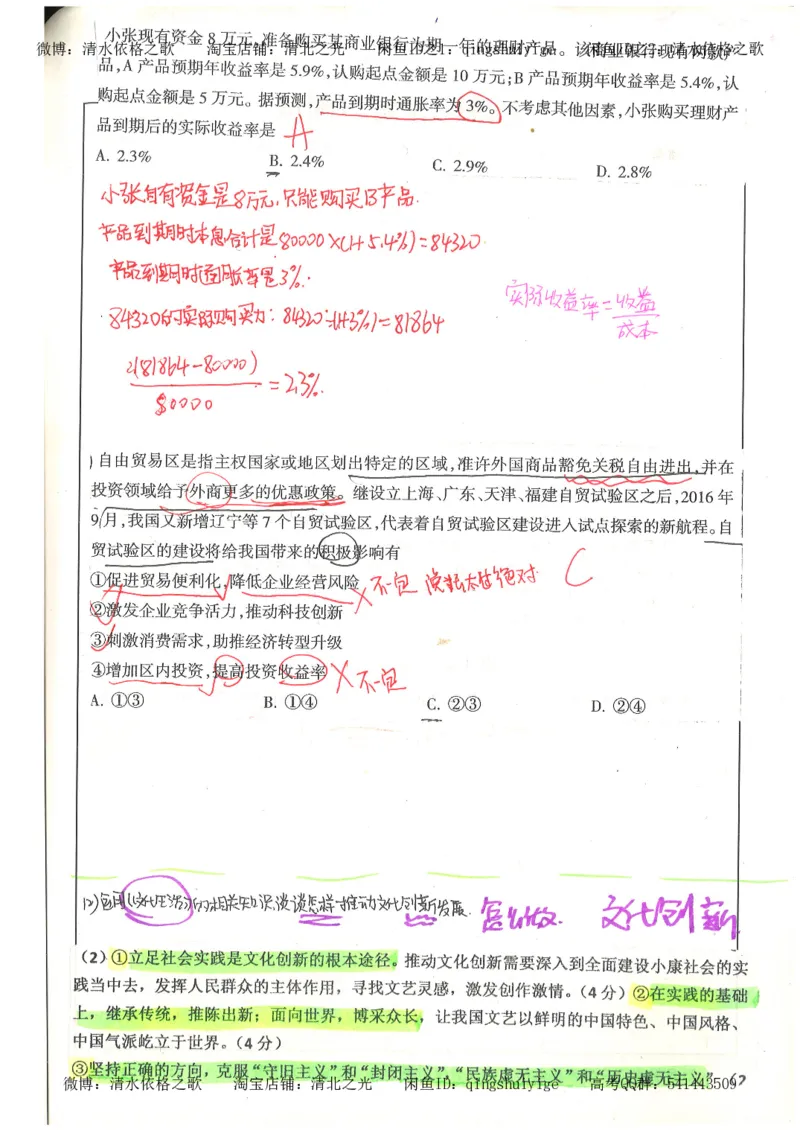 小张现有资金 8 万元,准备购买某商业银行为期一年的理财产品。该商业银行现有两款产
微博：清水依格之歌　淘宝店铺：清北之光　闲鱼ID：qingshuiyige
品,A 产品预期年收益率是 5.9%,认购起点金额是 10 万元;B 产品预期年收益率是 5.4%,认
购起点金额是 5 万元。据预测,产品到期时通胀率为 3%。不考虑其他因素,小张购买理财产
品到期后的实际收益率是 A
A. 2.3%　B. 2.4%　C. 2.9%　D. 2.8%
小张自有资金是8万元,只能购买B产品.
产品到期时本息合计是80000×(1+5.4%)=84320.
产品到期时通胀率是3%.
84320的实际购买力: 84320÷(1+3%)=81864
实际收益率=收益/成本
(81864-80000)
80000
=2.3%.
自由贸易区是指主权国家或地区划出特定的区域,准许外国商品豁免关税自由进出,并在
投资领域给予外商更多的优惠政策。继设立上海、广东、天津、福建自贸试验区之后,2016 年
9 月,我国又新增辽宁等 7 个自贸试验区,代表着自贸试验区建设进入试点探索的新航程。自
贸试验区的建设将给我国带来的积极影响有
①促进贸易便利化,降低企业经营风险 不一定 太绝对 C
②激发企业竞争活力,推动科技创新
③刺激消费需求,助推经济转型升级
④增加区内投资,提高投资收益率 不一定
A. ①③　B. ①④　C. ②③　D. ②④
(2)运用《文化生活》的相关知识,谈谈怎样推动文化创新发展. 怎么做. 文化创新
(2) ①立足社会实践是文化创新的根本途径。推动文化创新需要深入到全面建设小康社会的实
践当中去，发挥人民群众的主体作用，寻找文艺灵感，激发创作激情。(4 分) ②在实践的基础
上，继承传统，推陈出新；面向世界，博采众长，让我国文艺以鲜明的中国特色、中国风格、
中国气派屹立于世界。(4 分)
③坚持正确的方向，克服“守旧主义”和“封闭主义”，“民族虚无主义”和“历史虚无主义”
微博：清水依格之歌　淘宝店铺：清北之光　闲鱼ID：qingshuiyige　高考QQ群：541443509